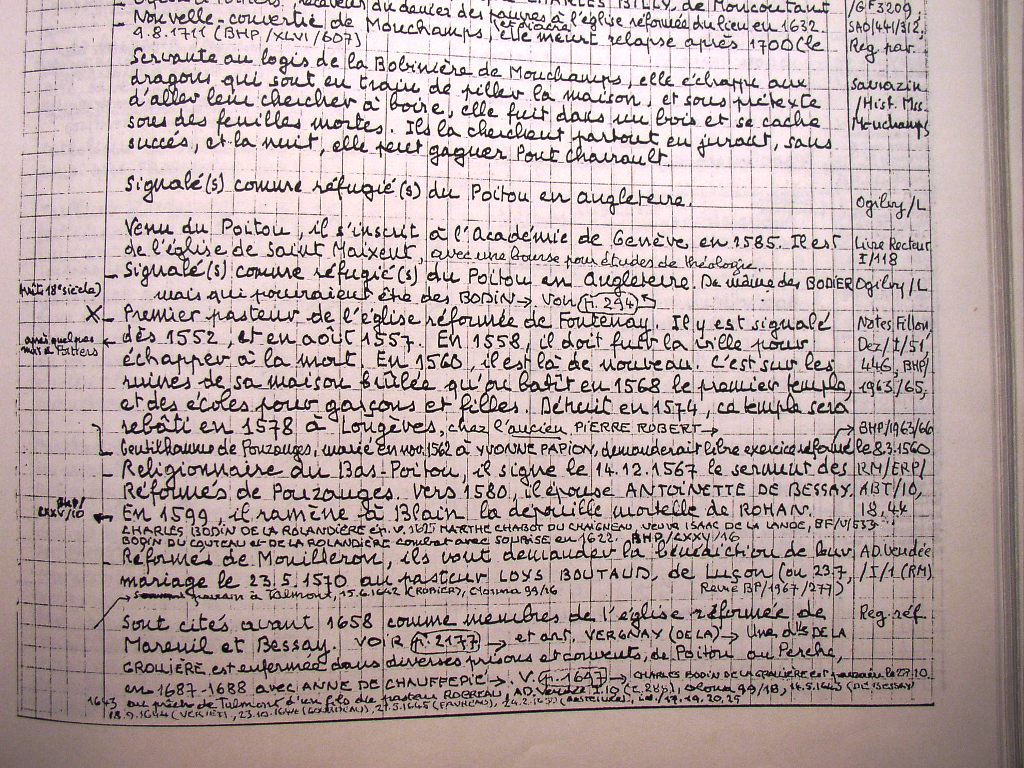 des pauvres à l'église réformée du lieu en 1632 SAO/441/312,
Nouvelle-convertie de Mouchamps, elle meurt relapse après 1700 (le Reg. par.
9.8.1711 (BHP/XLVI/607)
Servante au logis de la Bobinière de Mouchamps, elle échappe aux Sarrazin
dragons qui sont en train de piller la maison, et sous prétexte /Hist. Mss.
d'aller leur chercher à boire, elle fuit dans un bois et se cache Mouchamps
sous des feuilles mortes. Ils la cherchent partout en jurant, sans
succés, et la nuit, elle peut gagner Pont Charrault
Signalé(s) comme réfugié(s) du Poitou en angleterre. Ogilvy/L
Venu du Poitou, il s'inscrit à l'Académie de Genève en 1585. Il est Livre Recteur
de l'église de Saint Maixent, avec une bourse pour études de théologie. I/118
Signalé(s) comme réfugié(s) du Poitou en Angleterre. De même des BODIER Ogilvy/L
mais qui pourraient être des BODIN → Voir (n. 294)
X Premier pasteur de l'église réformée de Fontenay. Il y est signalé Notes Fillon,
dès 1552, et en août 1557. En 1558, il doit fuir la ville pour Dez/I/51,
échapper à la mort. En 1560, il est là de nouveau. C'est sur les 446, BHP/
ruines de sa maison brûlée qu'on batit en 1568 le premier temple, 1963/65,
et des écoles pour garçons et filles. Détruit en 1574, ce temple sera
rebâti en 1578 à Longèves, chez l'ancien PIERRE ROBERT → BHP/1963/66
Gentilhomme de Pouzauges, marié en nov. 1562 à YVONNE PAPION, demanderait libre exercice réformé le 8.3.1560
Religionnaire du Bas-Poitou, il signe le 14.12.1567 le serment des RM/ERP/
Réformés de Pouzauges. Vers 1580, il épouse ANTOINETTE DE BESSAY. ABT/10,
BHP/LXXV/10 ← En 1599, il ramène à Blain la dépouille mortelle de ROHAN. 18,44
CHARLES BODIN DE LA ROLANDIÈRE ép. V. 1625 MARTHE CHABOT DU CHAIGNEAU, VEUVE ISAAC DE LA LANDE, BF/V/533
BODIN DU COUTEAU et DE LA ROLANDIÈRE combat avec SOUBISE en 1622. BHP/LXXV/16
Réformés de Mouilleron, ils vont demander la bénédiction de leur AD. Vendée
mariage le 23.5.1570 au pasteur LOYS BOUTAUD, de Luçon (ou 23.7, /I/1 (RM)
parrain à Talmont, 15.6.1642 99/16 Revue BP/1967/277)
Sont cités avant 1658 comme membres de l'église réformée de Reg. réf.
Mareuil et Bessay. VOIR (n. 2177) → et art. VERGNAY (DE LA) → Une DE LA
GROLIÈRE est enfermée dans diverses prisons et couvents, de Poitou au Perche,
en 1687-1688 avec ANNE DE CHAUFFEPIÉ → V. (n. 1647) → CHARLES BODIN DE LA
1643 au prêche de Talmont d'un fils du pasteur ROGREAU, AD. Vendée I.10
18.9.1644